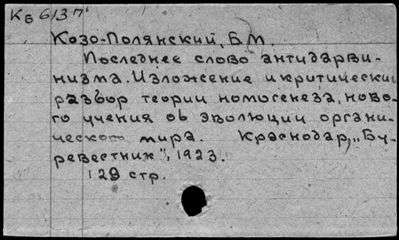 Кб 6137
Козо-Полянский, Б.М.
Последнее слово антидарви-
низма. Изложение и критический
разбор теории номогенеза, ново-
го учения об эволюции органи-
ческого мира. Краснодар, „Бу-
ревестник", 1923.
128 стр.